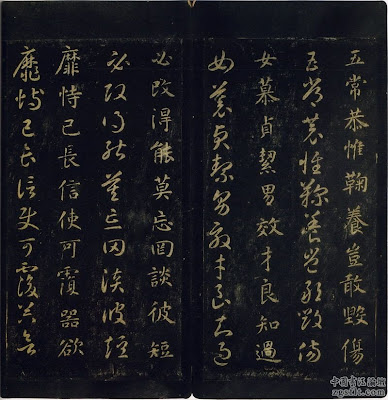 五常恭惟鞠養豈敢毀傷
五常恭惟鞠養豈敢毀傷
女慕貞潔男效才良知過
女慕貞潔男效才良知過
必改得能莫忘罔談彼短
必改得能莫忘罔談彼短
靡恃己長信使可覆器欲
靡恃己長信使可覆器欲